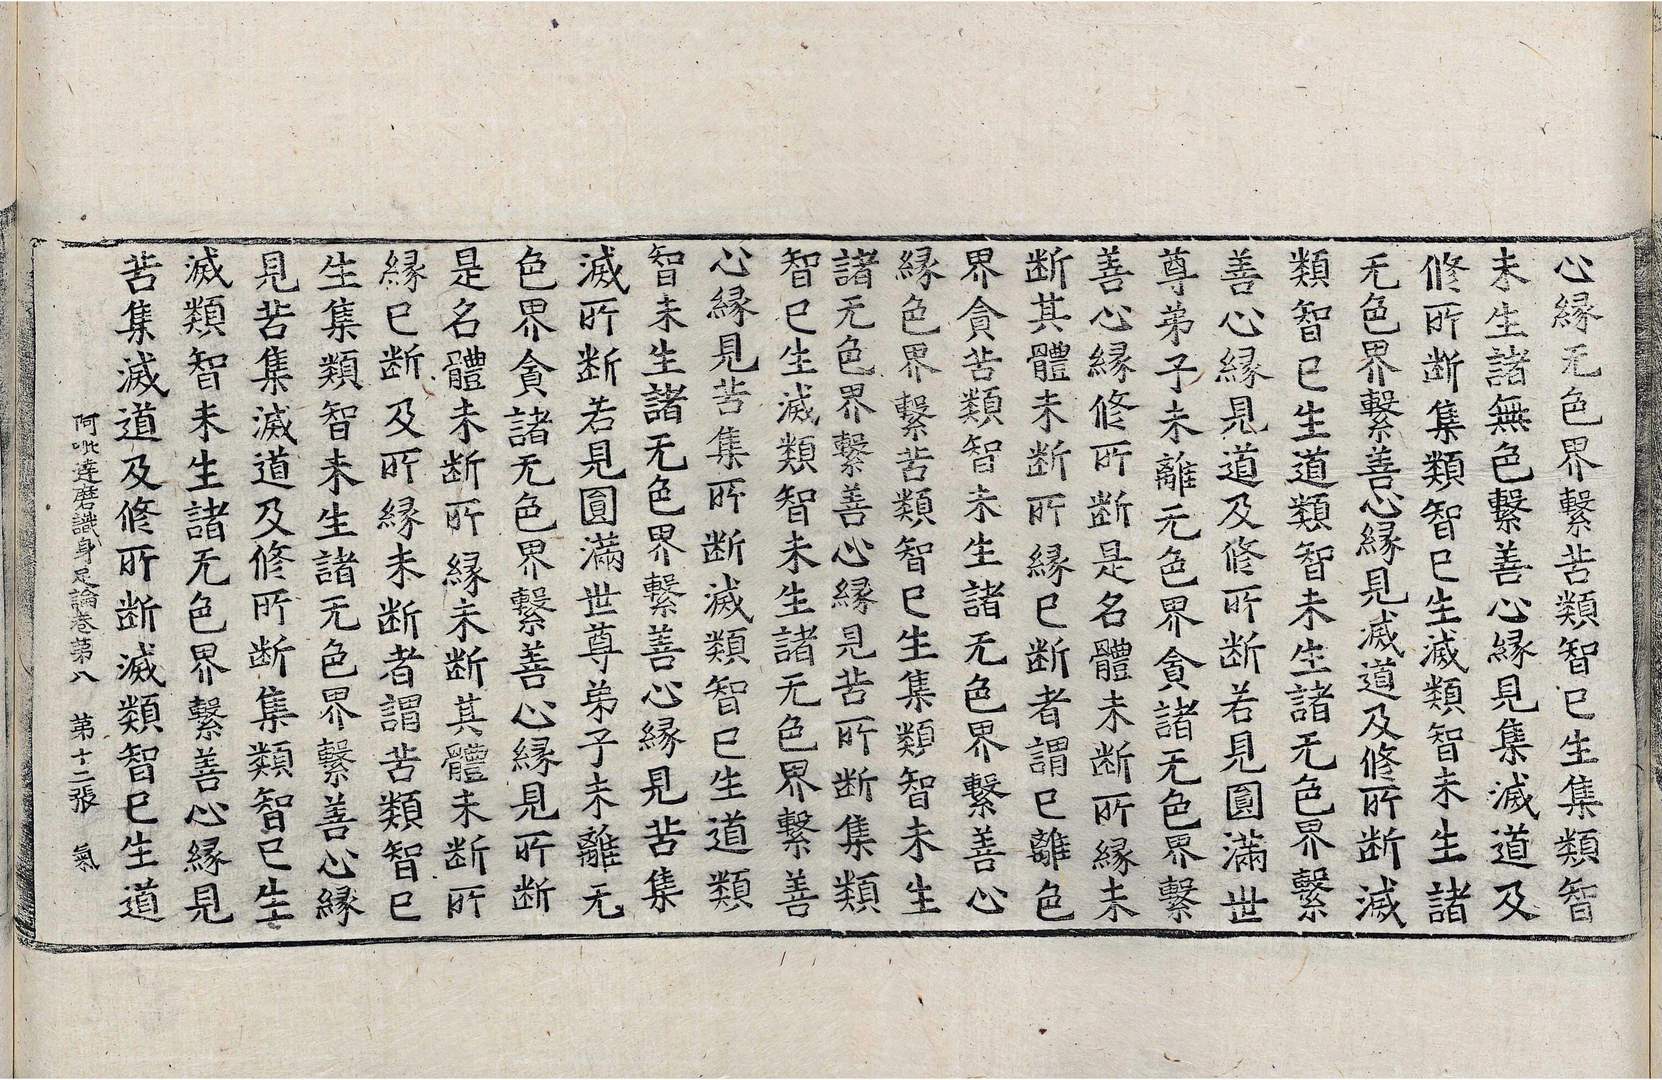 心縁无色界繫苦類智已生集類智
未生諸無色繫善心縁見集滅道及
修所断集類智已生滅類智未生諸
无色界繫善心縁見滅道及修所断滅
類智已生道類智未生諸无色界繫
善心縁見道及修所断若見圓滿世
尊弟子未離无色界貪諸无色界繫
善心縁修所断是名體未断所縁未
断其體未断所縁已断者謂已離色
界貪苦類智未生諸无色界繫善心
縁色界繫苦類智已生集類智未生
諸无色界繫善心縁見苦所断集類
智已生滅類智未生諸无色界繫善
心縁見苦集所断滅類智已生道類
智未生諸无色界繫善心縁見苦集
滅所断若見圓滿世尊弟子未離无
色界貪諸无色界繫善心縁見所断
是名體未断所縁未断其體未断所
縁已断及所縁未断者謂苦類智已
生集類智未生諸无色界繫善心縁
見苦集滅道及修所断集類智已生
滅類智未生諸无色界繫善心縁見
苦集滅道及修所断滅類智已生道
阿毗達磨識身足論卷第八 第十二張 氣